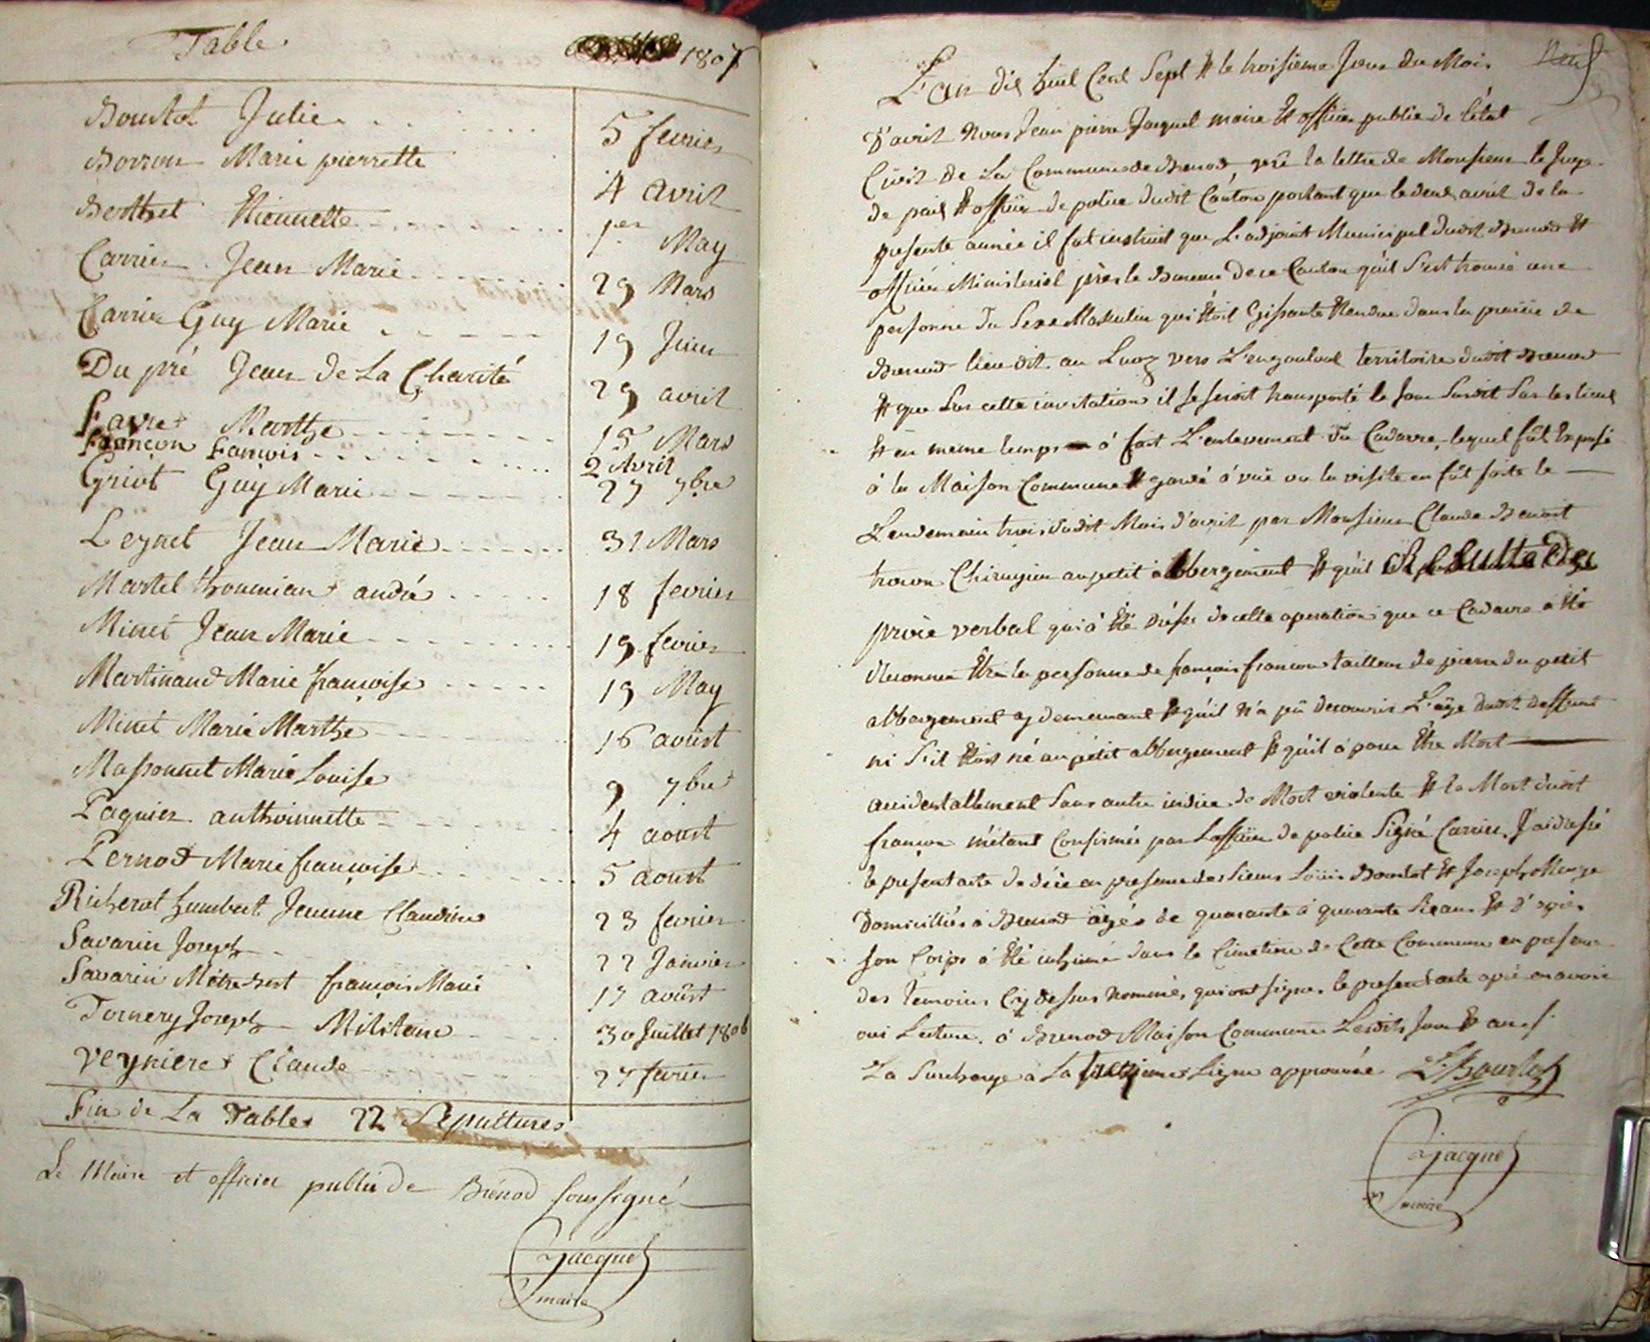 Table. 1807
Bourlot Julie 5 fevrier
Borron Marie pierrette 4 avril
Berthet Etiennette 1er May
Carrier Jean Marie 29 Mars
Carrier Guy Marie 19 Juin
Du pré Jean de La Charité 29 avril
Favre Marthe 15 Mars
Françon François 2 Avril
Griot Guy Marie 27 7bre
Leynet Jean Marie 31 Mars
Martel thoumian andré 18 fevrier
Minet Jean Marie 19 fevrier
Martinand Marie françoise 19 May
Minet Marie Marthe 16 août
Massonnet Marie Louise 9 7bre
Paquier anthoinnette 4 aoust
Pernod Marie françoise 5 aoust
Richerot humbert Jeunne Claudine 23 fevrier
Savarin Joseph 22 Janvier
Savarin françois Marie 17 août
Tornery Joseph Militaire 30 Juillet 1806
Veyniere Claude 27 fevrier
Fin de La Table 22 Sepultures
Le Maire et officier public de Brénod soussigné
Jacquet
maire
Neuf
L'an dix huit Cent Sept Et le troisieme Jour du Mois
D'avril Nous Jean pierre Jacquet maire Et officier public de l'état
Civil de La Commune de Brenod, vu la lettre de Monsieur le Juge
de paix Et officier de police dudit Canton portant que le deux avril de la
presente année il fut instruit que L'adjoint Municipal dudit Brenod Et
officier Ministeriel près le Bureau de ce Canton qu'il s'est trouvé une
personne du Sexe Masculin qui Etoit Gissante Etendue dans la prairie de
Brenod lieu dit au Luoz vers L'engouloud territoire dudit Brenod
Et que Sur cette invitation il se seroit transporté le Jour Susdit Sur les lieux
Et en meme temps à fait L'enlevement du Cadavre, lequel fût Exposé
à la Maison Commune Et gardé à vuë ou la visite en fût faite le
Lendemain trois dudit Mois d'avril par Monsieur Claude Benoit
trocon Chirurgien au petit abbergement Et qu'il Resulte des
procè verbal qui à Eté dréssé de cette operation que ce Cadavre à Eté
Reconnu Etre la personne de françois françon tailleur de pierre du petit
abbergement y demeurant Et qu'il n'a pû decouvrir L'age dudit deffunt
ni S'il Etoit né au petit abbergement Et qu'il à parut Etre Mort
accidentallement Sans autre indice de Mort violente Et la Mort dudit
françon m'étant Confirmée par L'officier de police Signé Carrier, J'ai dressé
le present acte de décè en presence des Sieurs Loüis Bourlot Et Joseph Monge
domiciliés à Brenod agés de quarante à quarante Six ans Et d'après
son Corps à Eté inhumé dans le Cimetiere de Cette Commune en presence
des temoins Cy dessus nommé, qui ont signés le present acte après en avoir
oui Lecture. à Brenod Maison Commune Lesdits Jour Et an
La Surcharge à La treizieme Ligne approuvée LBourlot
Jacquet
maire